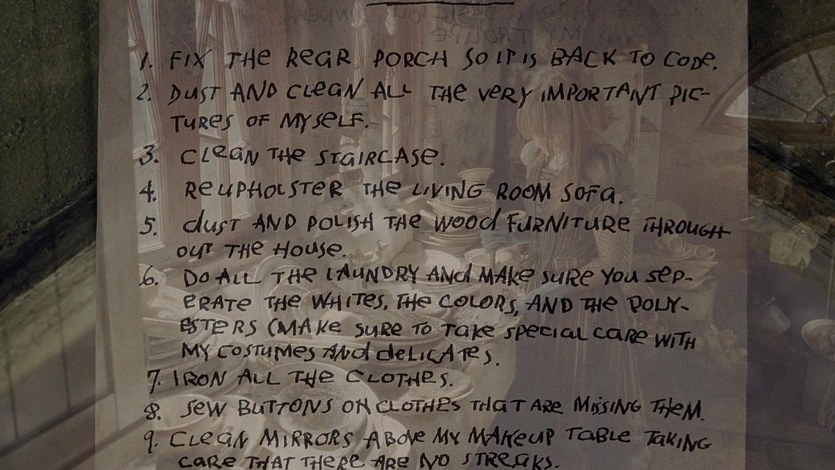 1. FIX THE REAR PORCH SO IT IS BACK TO CODE.
2. DUST AND CLEAN ALL THE VERY IMPORTANT PIC-
TURES OF MYSELF.
3. CLEAN THE STAIRCASE.
4. REUPHOLSTER THE LIVING ROOM SOFA.
5. DUST AND POLISH THE WOOD FURNITURE THROUGH-
OUT THE HOUSE.
6. DO ALL THE LAUNDRY AND MAKE SURE YOU SEP-
ERATE THE WHITES, THE COLORS, AND THE POLY-
ESTERS (MAKE SURE TO TAKE SPECIAL CARE WITH
MY COSTUMES AND DELICATES.
7. IRON ALL THE CLOTHES.
8. SEW BUTTONS ON CLOTHES THAT ARE MISSING THEM.
9. CLEAN MIRRORS ABOVE MY MAKEUP TABLE TAKING
CARE THAT THERE ARE NO STREAKS.